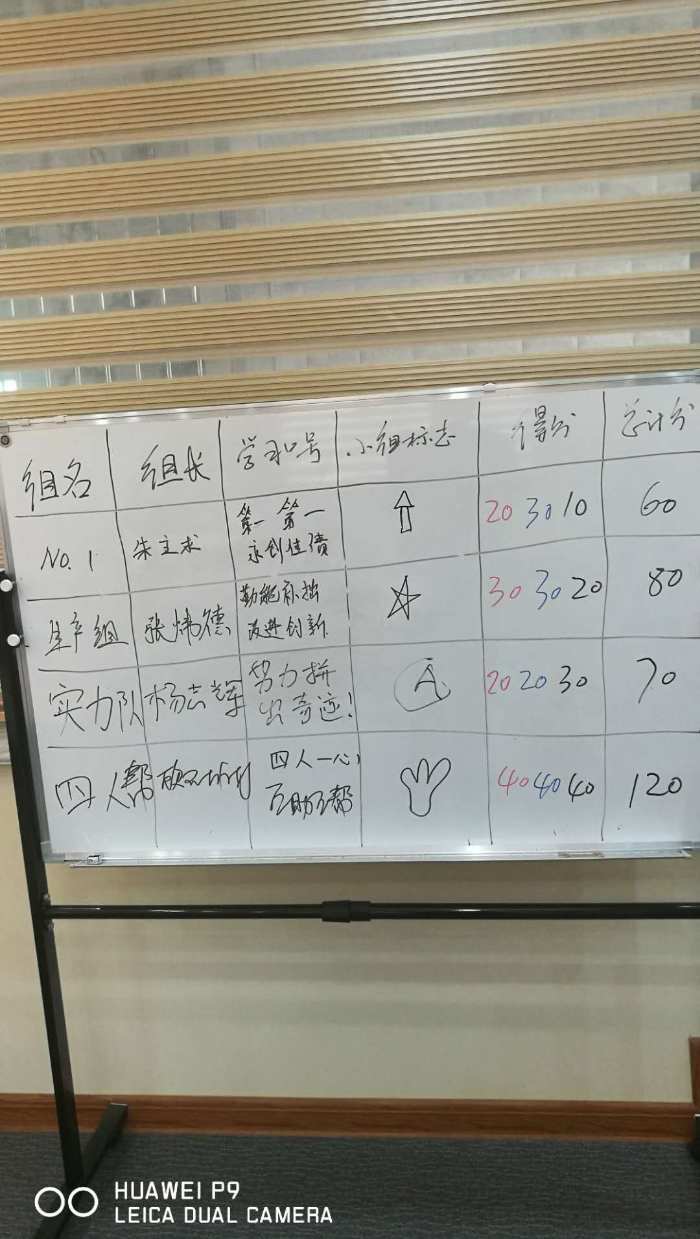 组名 组长 学习口号 小组标志 得分 总计分
No.1 朱主求 第一 第一 20 30 10 60
永创佳绩
生产组 张炜德 勤能补拙 30 30 20 80
改进创新
实力队 杨志辉 努力拼 A 20 20 30 70
出奇迹!
四人帮 四人一心, 40 40 40 120
互助互帮
HUAWEI P9
LEICA DUAL CAMERA